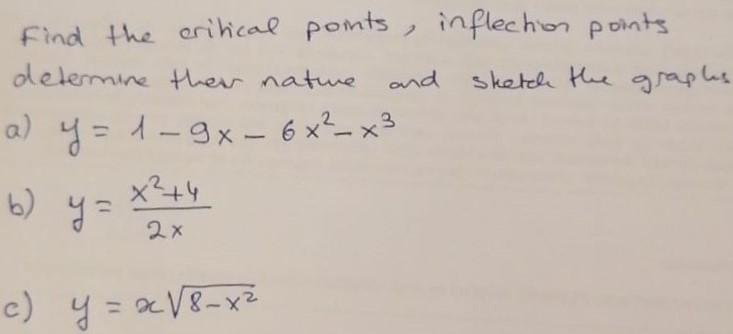 Find the critical points, inflection points
determine their nature and sketch the graphs
a) y = 1 - 9x - 6x² - x³
b) y = (x²+4)/(2x)
c) y = x√(8-x²)